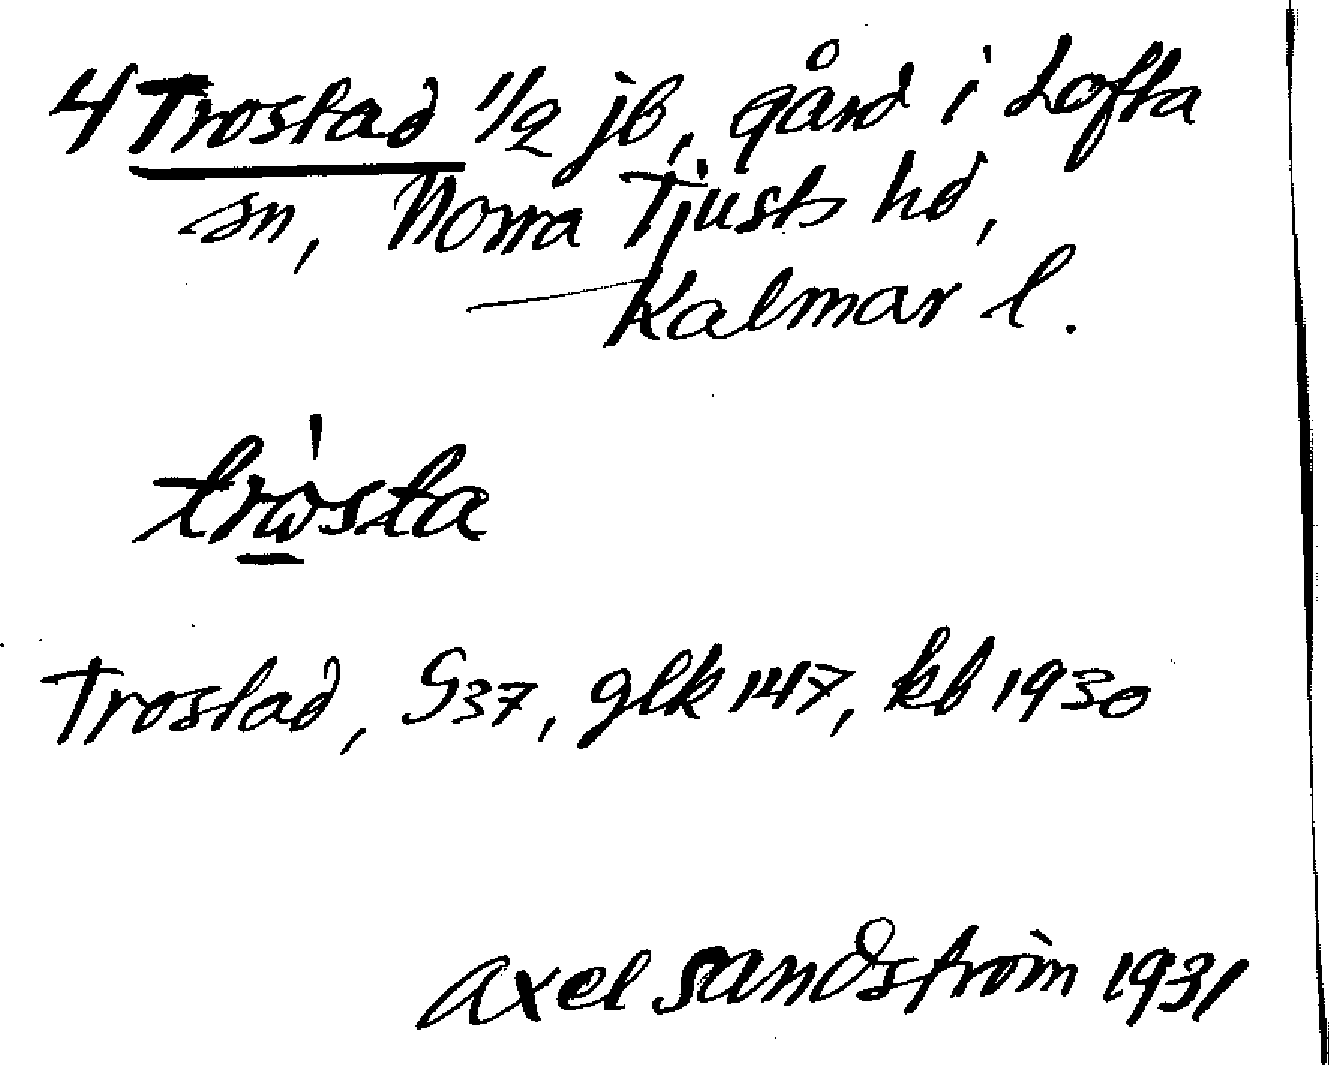 4 Trostad 1/2 jb, gård i Lofta
sn, Norra Tjusts hd,
Kalmar l.
trὼ̲sta
Trostad, S37, glk 147, kb 1930
Axel Sandström 1931